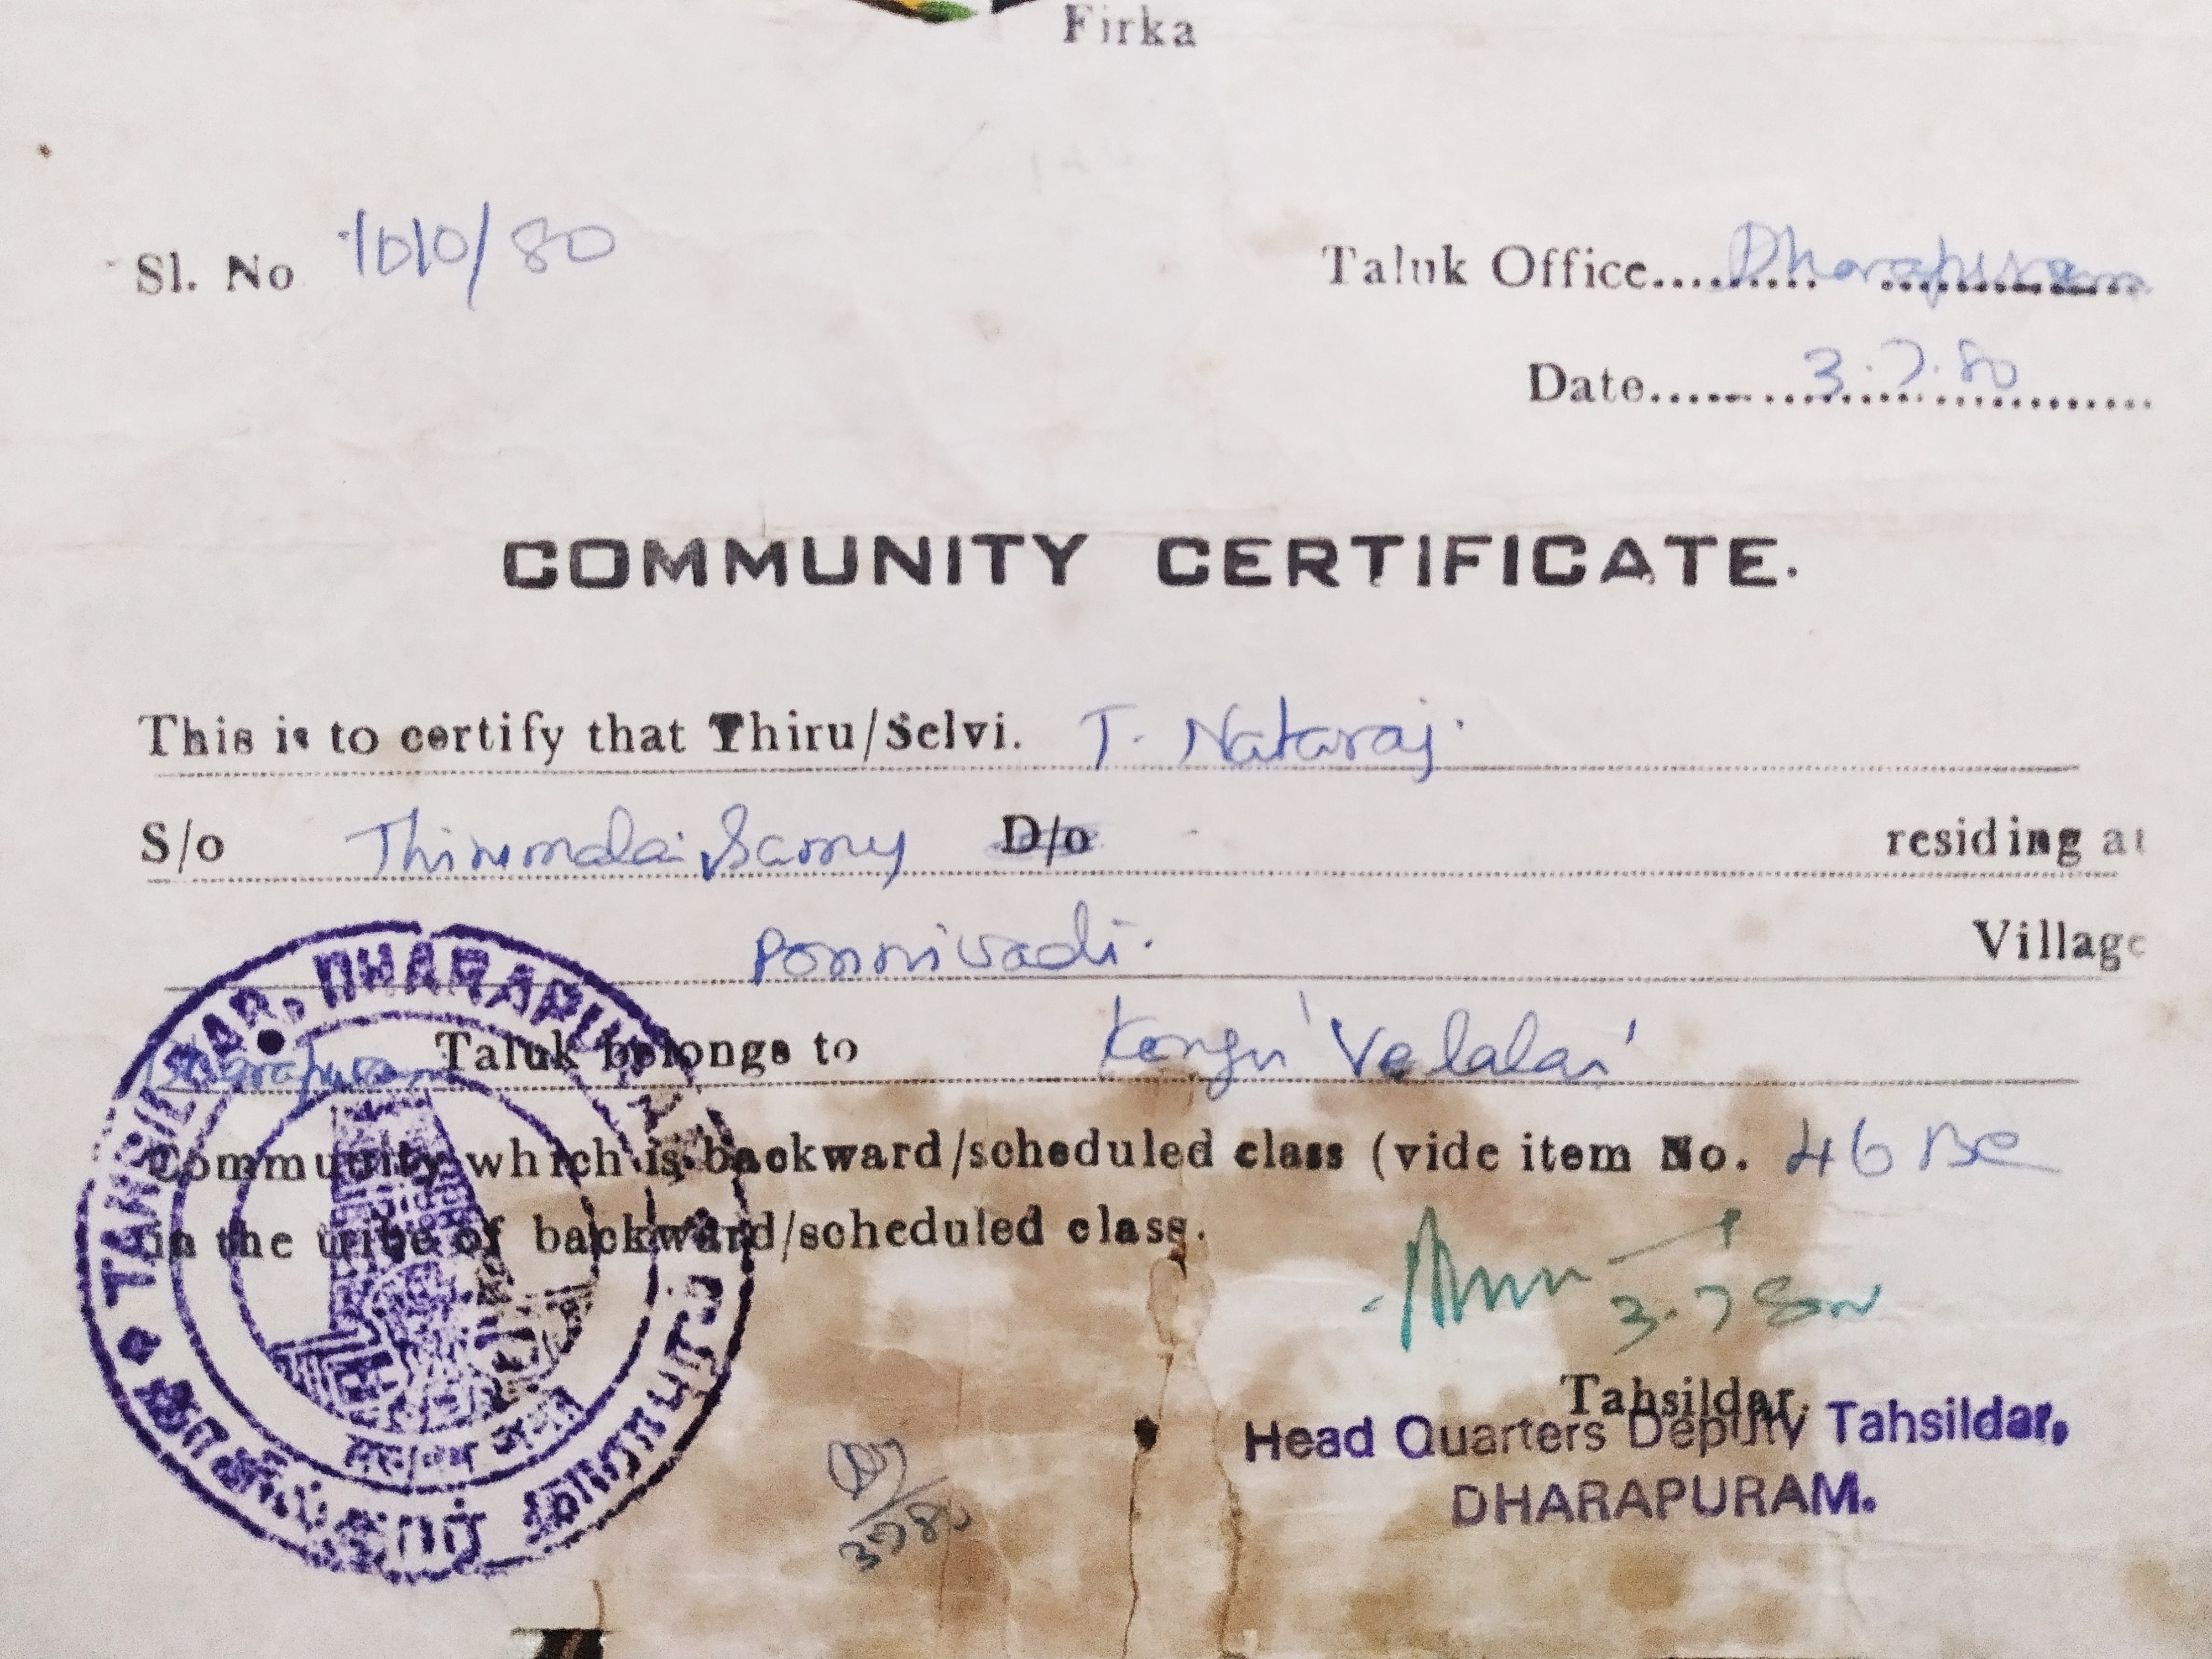 Firka
Sl. No 1010/80
Taluk Office......... Dharapuram
Date...... 3.7.80
COMMUNITY CERTIFICATE.
This is to certify that Thiru/Selvi. T. Nataraj.
S/o Thirumalai Samy D/o residing at
Ponnivadi. Village
Dharapuram Taluk belongs to Kongu 'Velalar'
Community which is backward/scheduled class (vide item No. 46 BC
in the tribe of backward/scheduled class.
3.7.80
Tahsildar.
Head Quarters Deputy Tahsildar,
DHARAPURAM.
3.7.80
TAHSILDAR, DHARAPURAM
தாசில்தார் தாராபுரம்